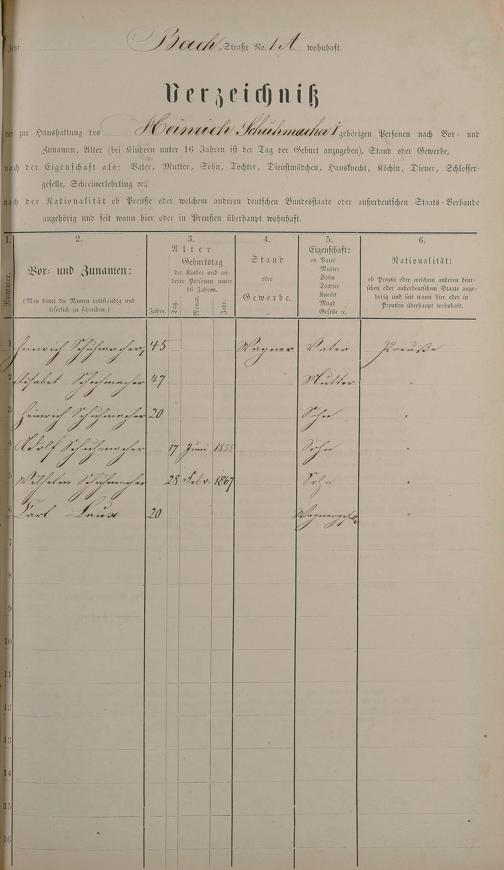 Jetzt Bach Straße No. 1 A wohnhaft.
Verzeichniß
der zur Haushaltung des Heinrich Schuhmacher I gehörigen Personen nach Vor- und
Zunamen, Alter (bei Kindern unter 16 Jahren ist der Tag der Geburt anzugeben), Stand oder Gewerbe,
nach der Eigenschaft als: Vater, Mutter, Sohn, Tochter, Dienstmädchen, Hausknecht, Köchin, Diener, Schlosser-
geselle, Schreinerlehrling ec.,
nach der Nationalität ob Preuße oder welchem anderen deutschen Bundesstaate oder außerdeutschen Staats-Verbande
angehörig und seit wann hier oder in Preußen überhaupt wohnhaft.
1. 2. 3. 4. 5. 6.
Nummer.
Vor- und Zunamen:
(Man bittet die Namen vollständig und
leserlich zu schreiben.)
Alter
Geburtstag
der Kinder und an-
derer Personen unter
16 Jahren.
Jahre. Tag. Monat. Jahr.
Stand
oder
Gewerbe.
Eigenschaft:
ob Vater
Mutter
Sohn
Tochter
Knecht
Magd
Geselle ec.
Nationalität:
ob Preuße oder welchem anderen deut-
schen oder außerdeutschen Staate ange-
hörig und seit wann hier oder in
Preußen überhaupt wohnhaft.
1 Heinrich Schuhmacher I 45 Wagner Vater Preuße
2 Elisabet Schuhmacher 47 Mutter "
3 Heinrich Schuhmacher 20 Sohn "
4 Adolf Schuhmacher 17 Juni Sohn "
5 Wilhelm Schuhmacher 28 Febr. 1867 Sohn "
6 Carl Laux 20 Wagnergeselle "
7
8
9
10
11
12
13
14
15
16